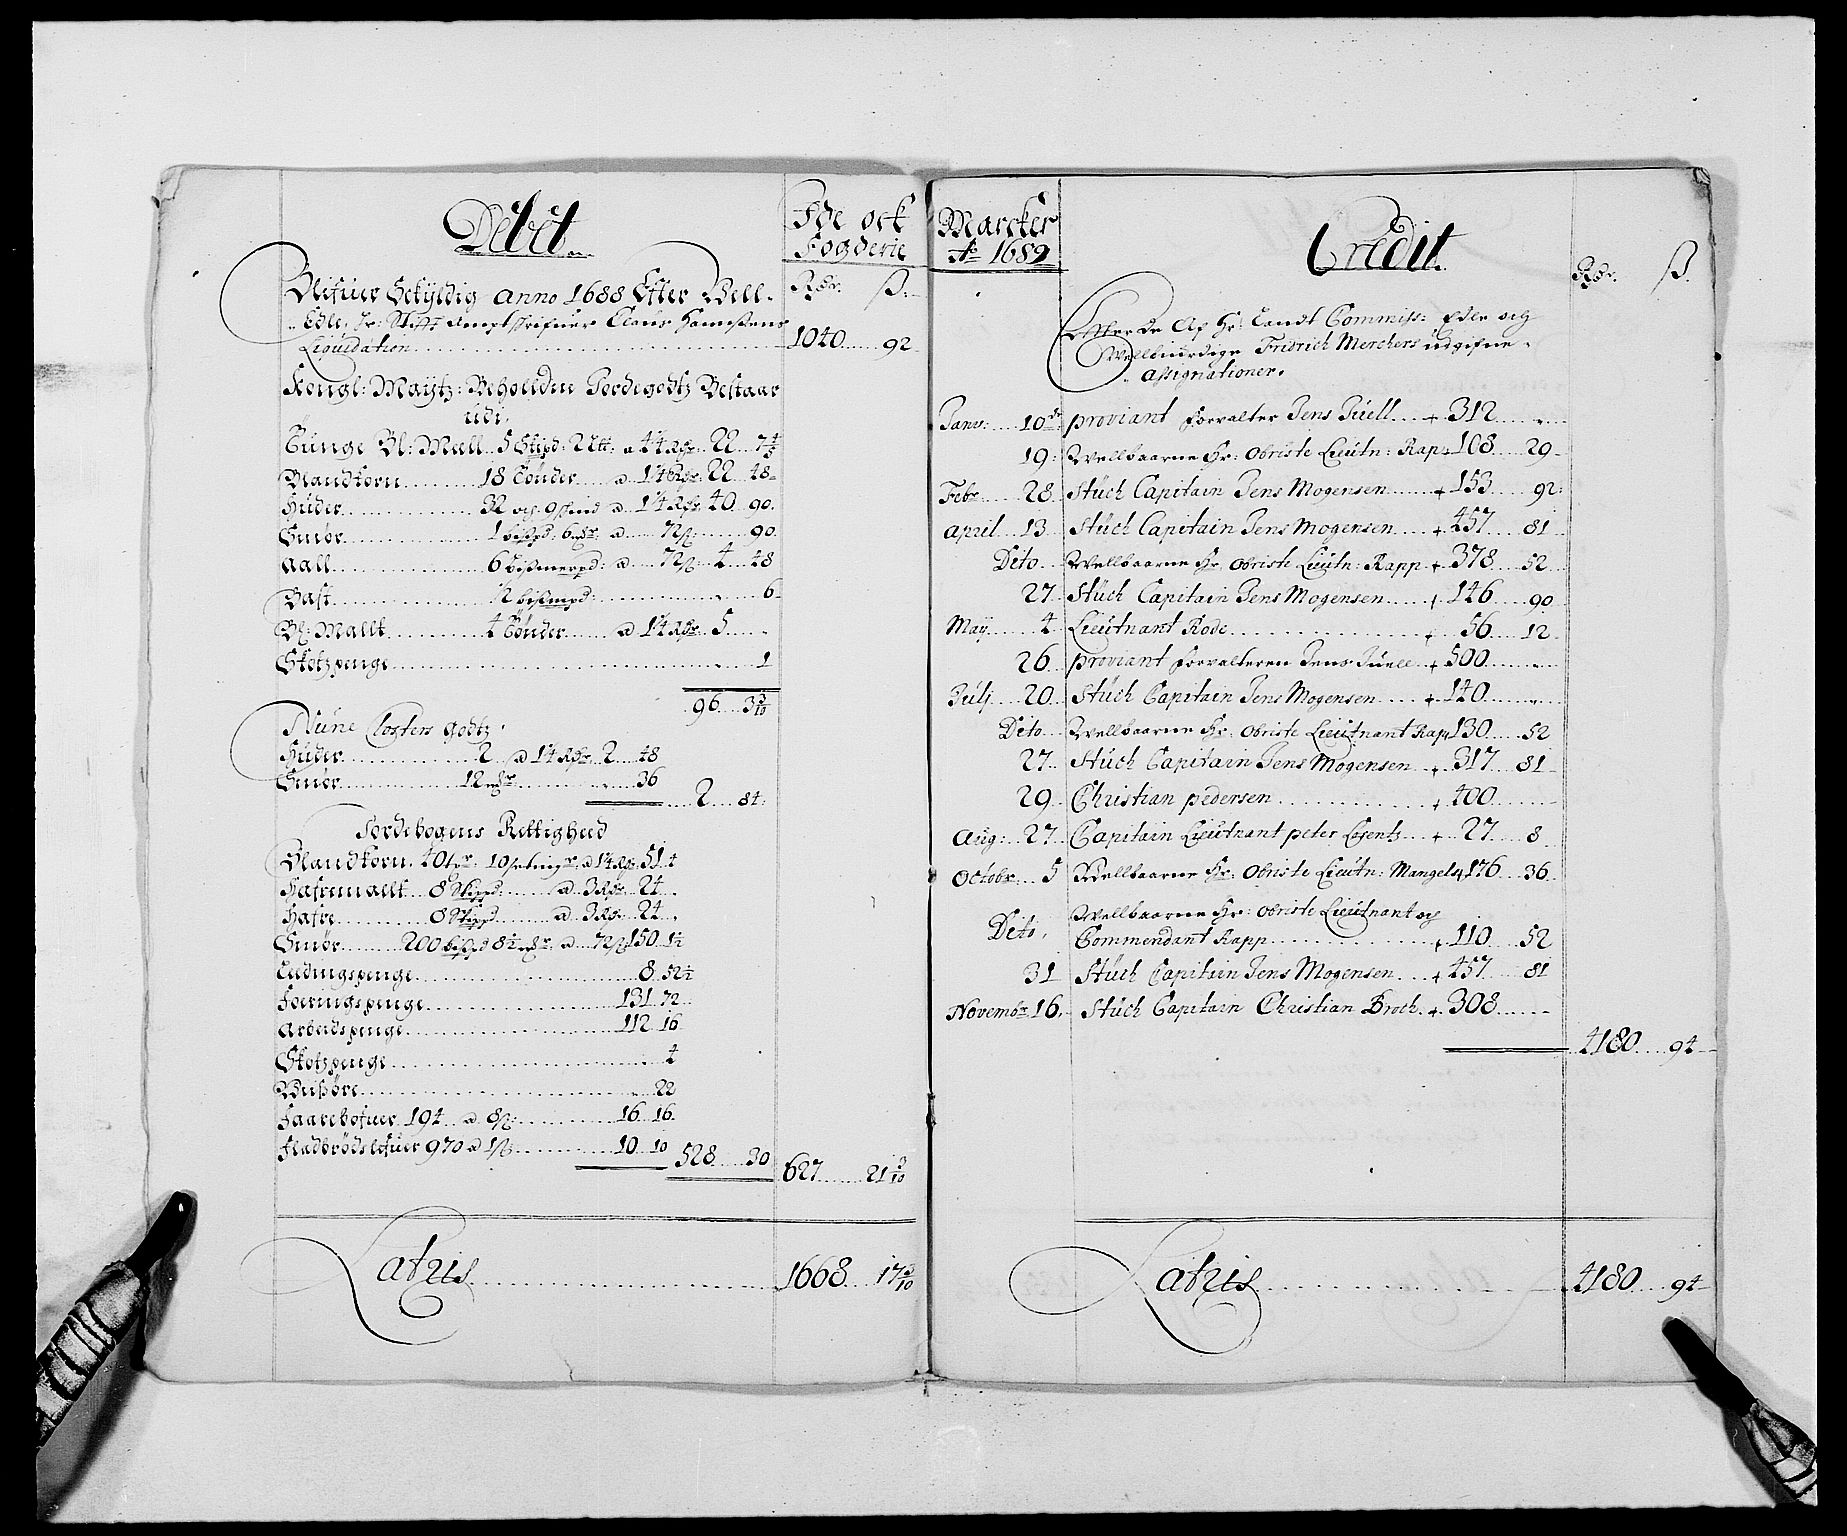 Debet
Ide ock
Fogderie
Rdr. ß.
Blifuer Schyldig Anno 1688 Efter Vell-
Edle, Sr: Stifft Amptskrifuer Claus Hanssens
Liquidation 1040 92
Kongl: Maytz: Beholldne Jordegodtz Bestaar
udi.
Tunge Bl: Meell 5 Skipd: 2 Ltt: a 4¼ Rdr. 22 7⅘
Blandkorn 18 Tønder a 1¼ Rdr. 22 48
Huder 32 och 9 skind a 1¼ Rdr. 40 90
Smør 1 bißpd. 6 mkr. a 72 ß 90
Aall 6 bißmerpd: a 72 ß 4 48
Bast ½ bißmpd: 6
Bl: Mallt 4 Tønder a 1¼ Rdr. 5
Skotzpenge 1
96 3 3/10
Nune Closters Godtz
Huder 2 a 1¼ Rdr. 2 48
Smør 12 mkr. 36
2 84
Jordebogens Rettigheed
Blandkorn 40 tr. 10 setinger a 1¼ Rdr. 51 4
Hafremallt 8 Skippd a 3 Rdr. 24
Hafre 8 Skippd a 3 Rdr. 24
Smør 200 bißpd 8½ mkr. a 72 ß 150 1½
Leedingspenge 8 52½
Foeringspenge 131 72
Arbeidspenge 112 16
Skotzpenge 4
Wißøre 22
Faarebofuer 194 a 8 ß 16 16
Fladbrødslefuer 970 a 1 ß 10 10
528 30 627 21 3/10
Latris 1668 17 3/10
Marcker
Ao 1689
Credit
Rdr. ß.
Efter De Af Hr: Landt Commiss: Edle og
Wellbiurdige Fridrich Merckers udgifne
Assignationer.
Janv: 10de Proviant Forvalter Jens Juell 312
19 Wellbaarne Hr: Obriste Lieutn: Rapp 108 29
Febr. 28 Stuck Capitain Jens Mogensen 153 92
April 13 Stuck Capitain Jens Mogensen 457 81
Dito Wellbaarne Hr. Obriste Lieutn: Rapp 378 52
27 Stuck Capitain Jens Mogensen 146 90
May 4 Lieutnant Rode 56 12
26 Proviant Forvalteren Jens Juell 500
Julj 20 Stuck Capitain Jens Mogensen 140
Dito Wellbaarne Hr: Obriste Lieutnant Rapp 130 52
27 Stuck Capitain Jens Mogensen 317 81
29 Christian Pedersen 400
Aug: 27 Capitain Lieutnant Peter Lorentz 27 8
Octobr. 5 Wellbaarne Hr: Obriste Lieutn: Mangels 176 36
Wellbaarne Hr: Obriste Lieutnant og
Dito, Commendant Rapp 110 52
31 Stuck Capitain Jens Mogensen 457 81
Novembr. 16 Stuck Capitain Christian Broch 308
4180 94
Latris 4180 94